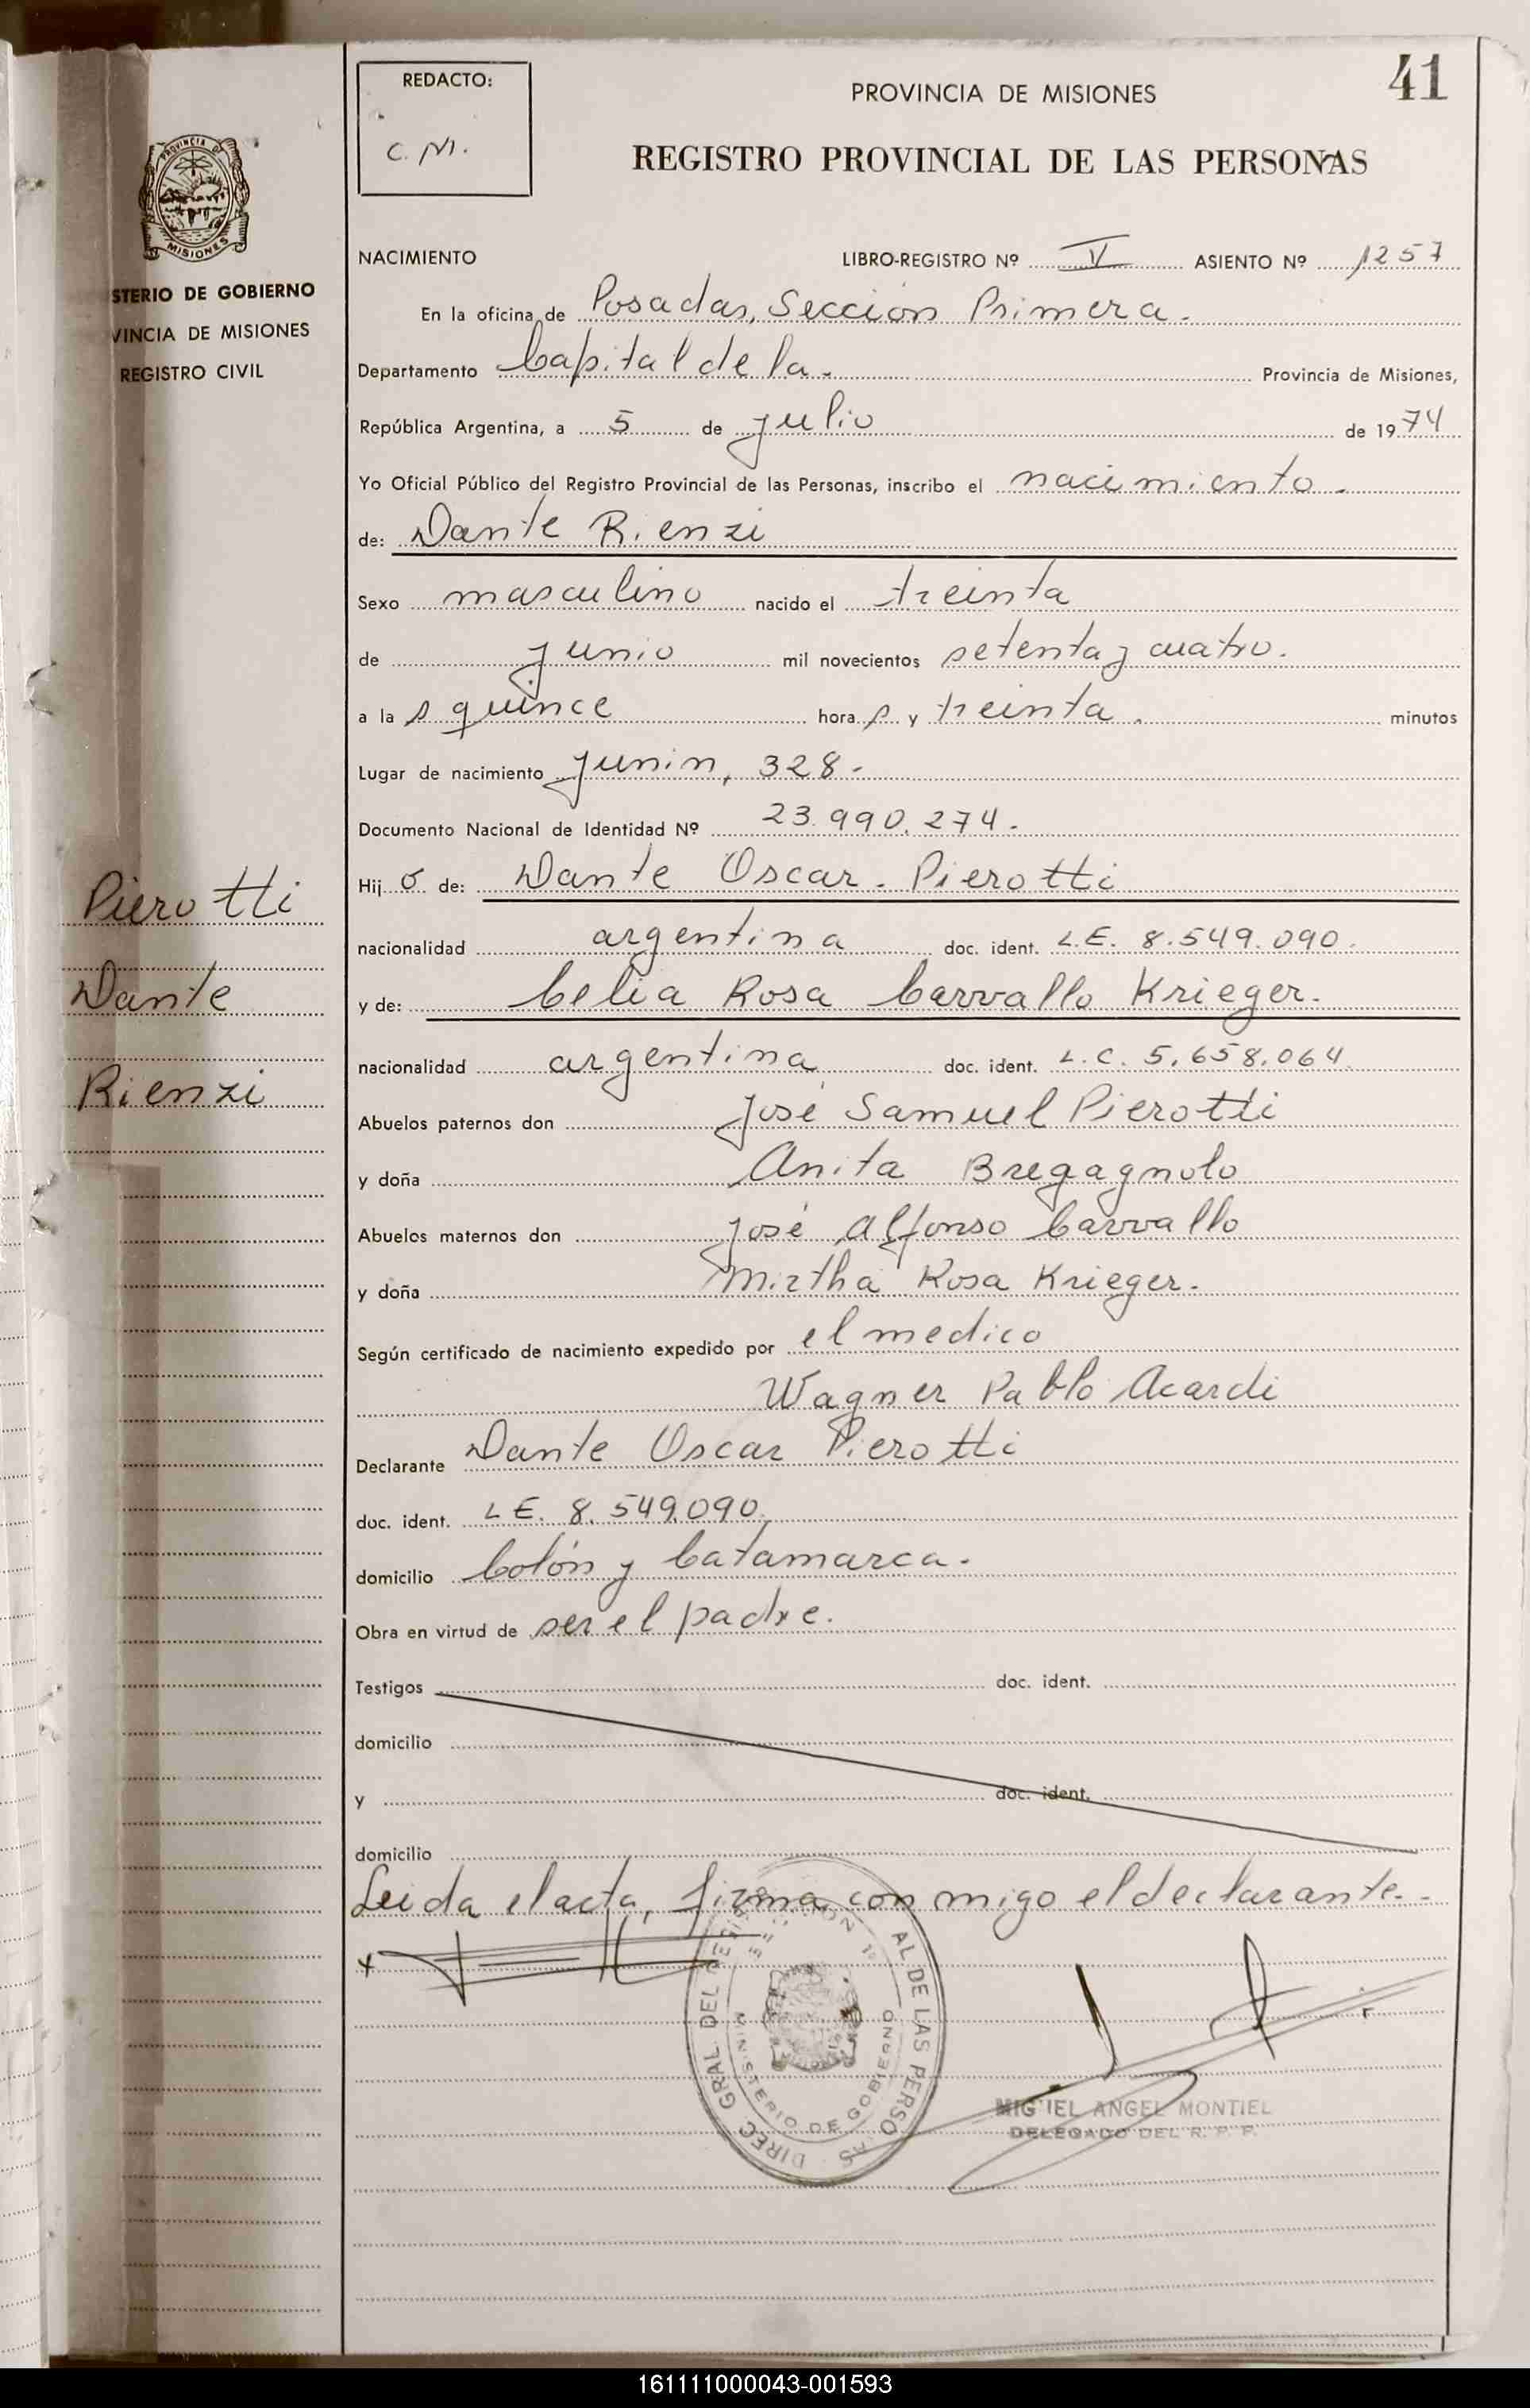 41
REDACTO:
C. M.
PROVINCIA DE MISIONES
REGISTRO PROVINCIAL DE LAS PERSONAS
PROVINCIA DE
MISIONES
STERIO DE GOBIERNO
VINCIA DE MISIONES
REGISTRO CIVIL
NACIMIENTO LIBRO-REGISTRO Nº V ASIENTO Nº 1257
En la oficina de Posadas, Sección Primera.
Departamento Capital de la. Provincia de Misiones,
República Argentina, a 5 de julio de 1974
Yo Oficial Público del Registro Provincial de las Personas, inscribo el nacimiento.
de: Dante Rienzi
Sexo masculino nacido el treinta
de junio mil novecientos setenta y cuatro.
a las quince horas y treinta. minutos
Lugar de nacimiento Junin, 328.
Documento Nacional de Identidad Nº 23.990.274.
Hijo de: Dante Oscar. Pierotti
nacionalidad argentina doc. ident. L.E. 8.549.090.
y de: Celia Rosa Carvallo Krieger.
nacionalidad argentina doc. ident. L.C. 5.658.064.
Abuelos paternos don José Samuel Pierotti
y doña Anita Bregagnolo
Abuelos maternos don José Alfonso Carvallo
y doña Mirtha Rosa Krieger.
Según certificado de nacimiento expedido por el medico
Wagner Pablo Acardi
Declarante Dante Oscar Pierotti
doc. ident. LE. 8.549.090.
domicilio Colón y Catamarca.
Obra en virtud de ser el padre.
Testigos doc. ident.
domicilio
y doc. ident.
domicilio
Leida el acta, firma conmigo el declarante.
Pierotti
Dante
Rienzi
DIREC. GRAL. DEL AL DE LAS PERSO AS
MINISTERIO DE GOBIERNO
MIG IEL ANGEL MONTIEL
DELEGADO DEL R. P. P.
161111000043-001593